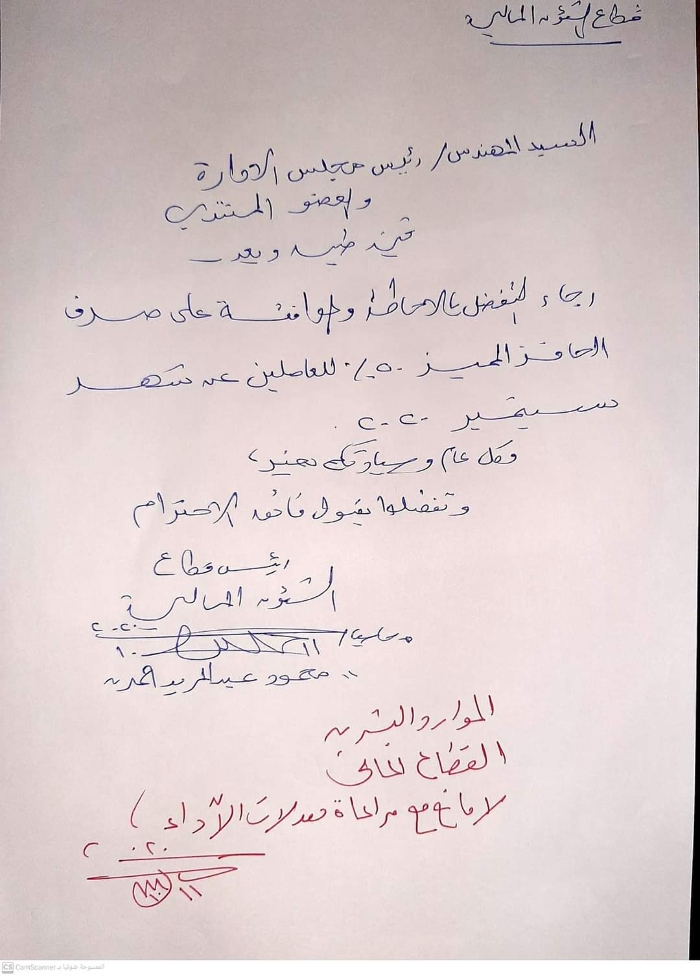 قطاع الشئون المالية
السيد المهندس/ رئيس مجلس الإدارة
والعضو المنتدب
تحية طيبة وبعد
رجاء التفضل بالإحاطة والموافقة على صرف
الحافز المميز ٥٠٪ للعاملين عن شهر
سبتمبر ٢٠٢٠
وكل عام وسيادتكم بخير،
وتفضلوا بقبول فائق الاحترام
رئيس قطاع
الشئون المالية
محاسب/
محمود عبد
الموارد البشرية
القطاع المالى
لا مانع مع مراعاة معدلات الأداء
المسوحة ضوئيا بـ CamScanner